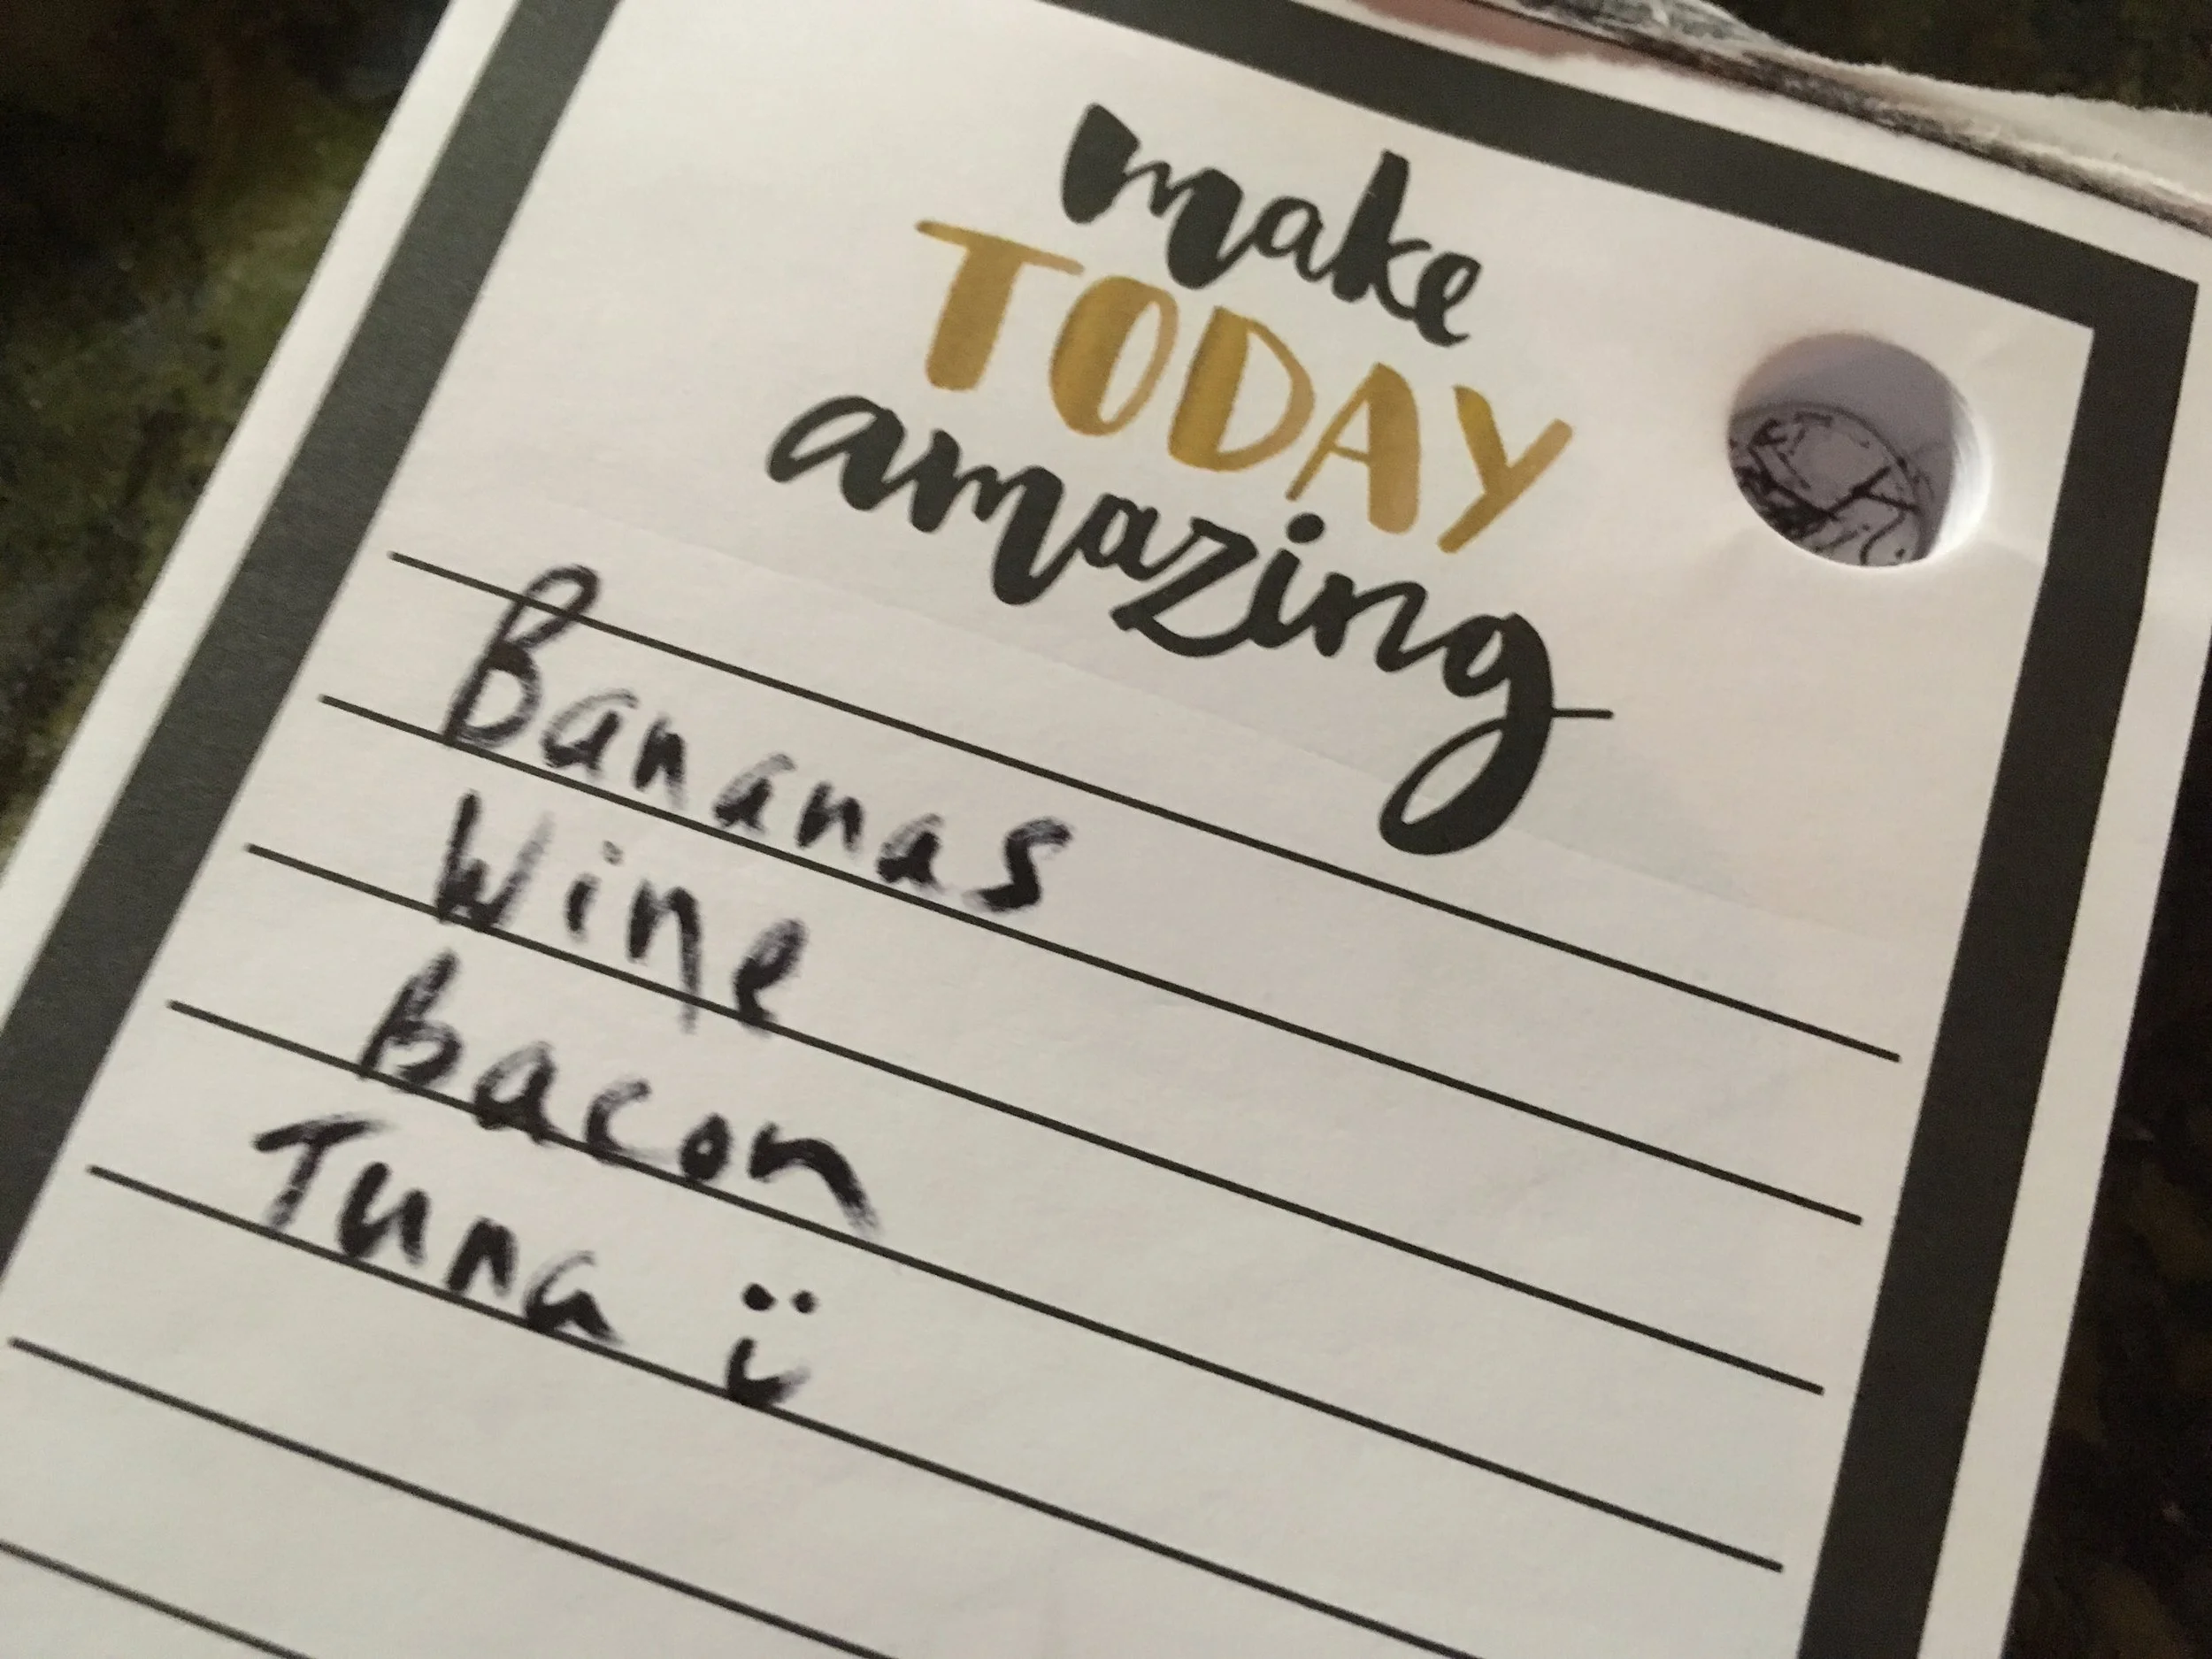 make
TODAY
amazing
Bananas
Wine
Bacon
Tuna ü